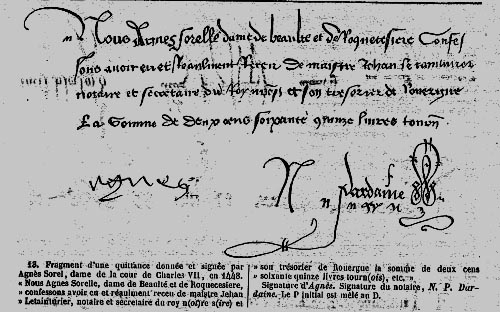 Nous Agnes sorelle dame de beaulte et de Roquecesiere Confes
sons avoir eu et Reaulment Receu de maistre Jehan le tainturier
notaire et secretaire du Roy nres et son tresorier de Rouergue
La somme de deux cens soixante quinze livres tourn
Agnes
N P dardaine
13. Fragment d'une quittance donnée et signée par
Agnès Sorel, dame de la cour de Charles VII, en 1448.
« Nous Agnes Sorelle, dame de Beaulté et de Roquecessiere,
« confessons avoir eu et réaulment receu de maistre Jehan
« Letainturier, notaire et secrétaire du roy n(ot)re s(ire) et
» son trésorier de Rouergue la somme de deux cens
» soixante quinze livres tourn(ois), etc. »
Signature d'Agnès. Signature du notaire, N. P. Dar-
daine. Le P initial est mêlé au D.